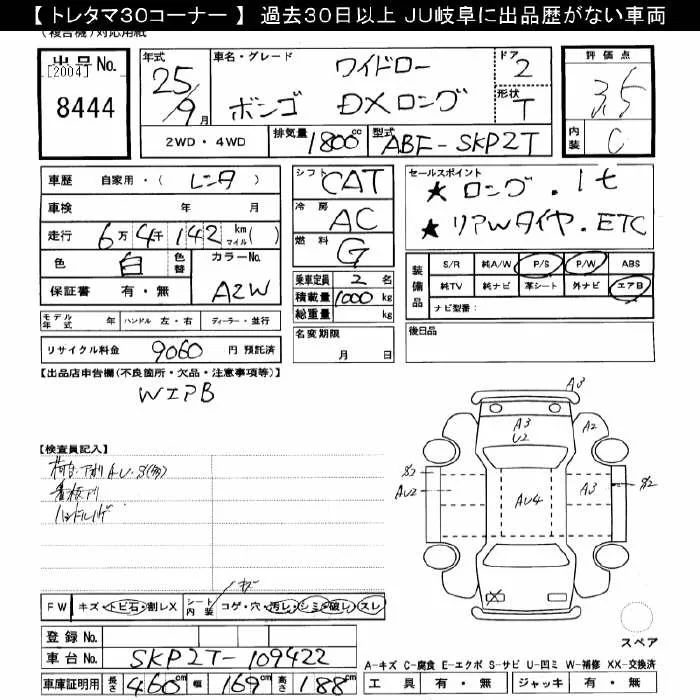 【 トレタマ30コーナー 】 過去30日以上 JU岐阜に出品歴がない車両
(複合機)対応用紙
出品No. [2004] 8444
年式 25/9月
車名・グレード ワイドロー
ボンゴ DXロング
ドア 2
形状 T
評価点 3.5
内装 C
2WD・4WD 排気量 1800cc 型式 ABF-SKP2T
車歴 自家用・( レンタ )
車検 年 月
走行 6万4千142 km マイル( )
色 白 色替 カラーNo. A2W
保証書 有・無
シフト CAT
冷房 AC
燃料 G
乗車定員 2名
積載量 1000kg
総重量 kg
セールスポイント
★ ロング . 1t
★ リアWタイヤ . ETC
装備品 S/R 純A/W P/S P/W ABS
純TV 純ナビ 革シート 外ナビ エアB
ナビ型番:
モデル年式 年 ハンドル 左・右 ディーラー・並行
名変期限 月 日
後日品
リサイクル料金 9060 円 預託済
【出品店申告欄(不良箇所・欠品・注意事項等)】
WエアB
【検査員記入】
A3
A3
U2
A2
S2
AU2
AU4
A3
S2
X
FW キズ・トビ石・割レX シート内装 コゲ・穴・汚レ・シミ・破レ・スレ
スペア
登録No.
車台No. SKP2T-109422
A-キズ C-腐食 E-エクボ S-サビ U-凹ミ W-補修 XX-交換済
車庫証明用 長さ 460cm 幅 169cm 高さ 188cm
工具 有・無 ジャッキ 有・無